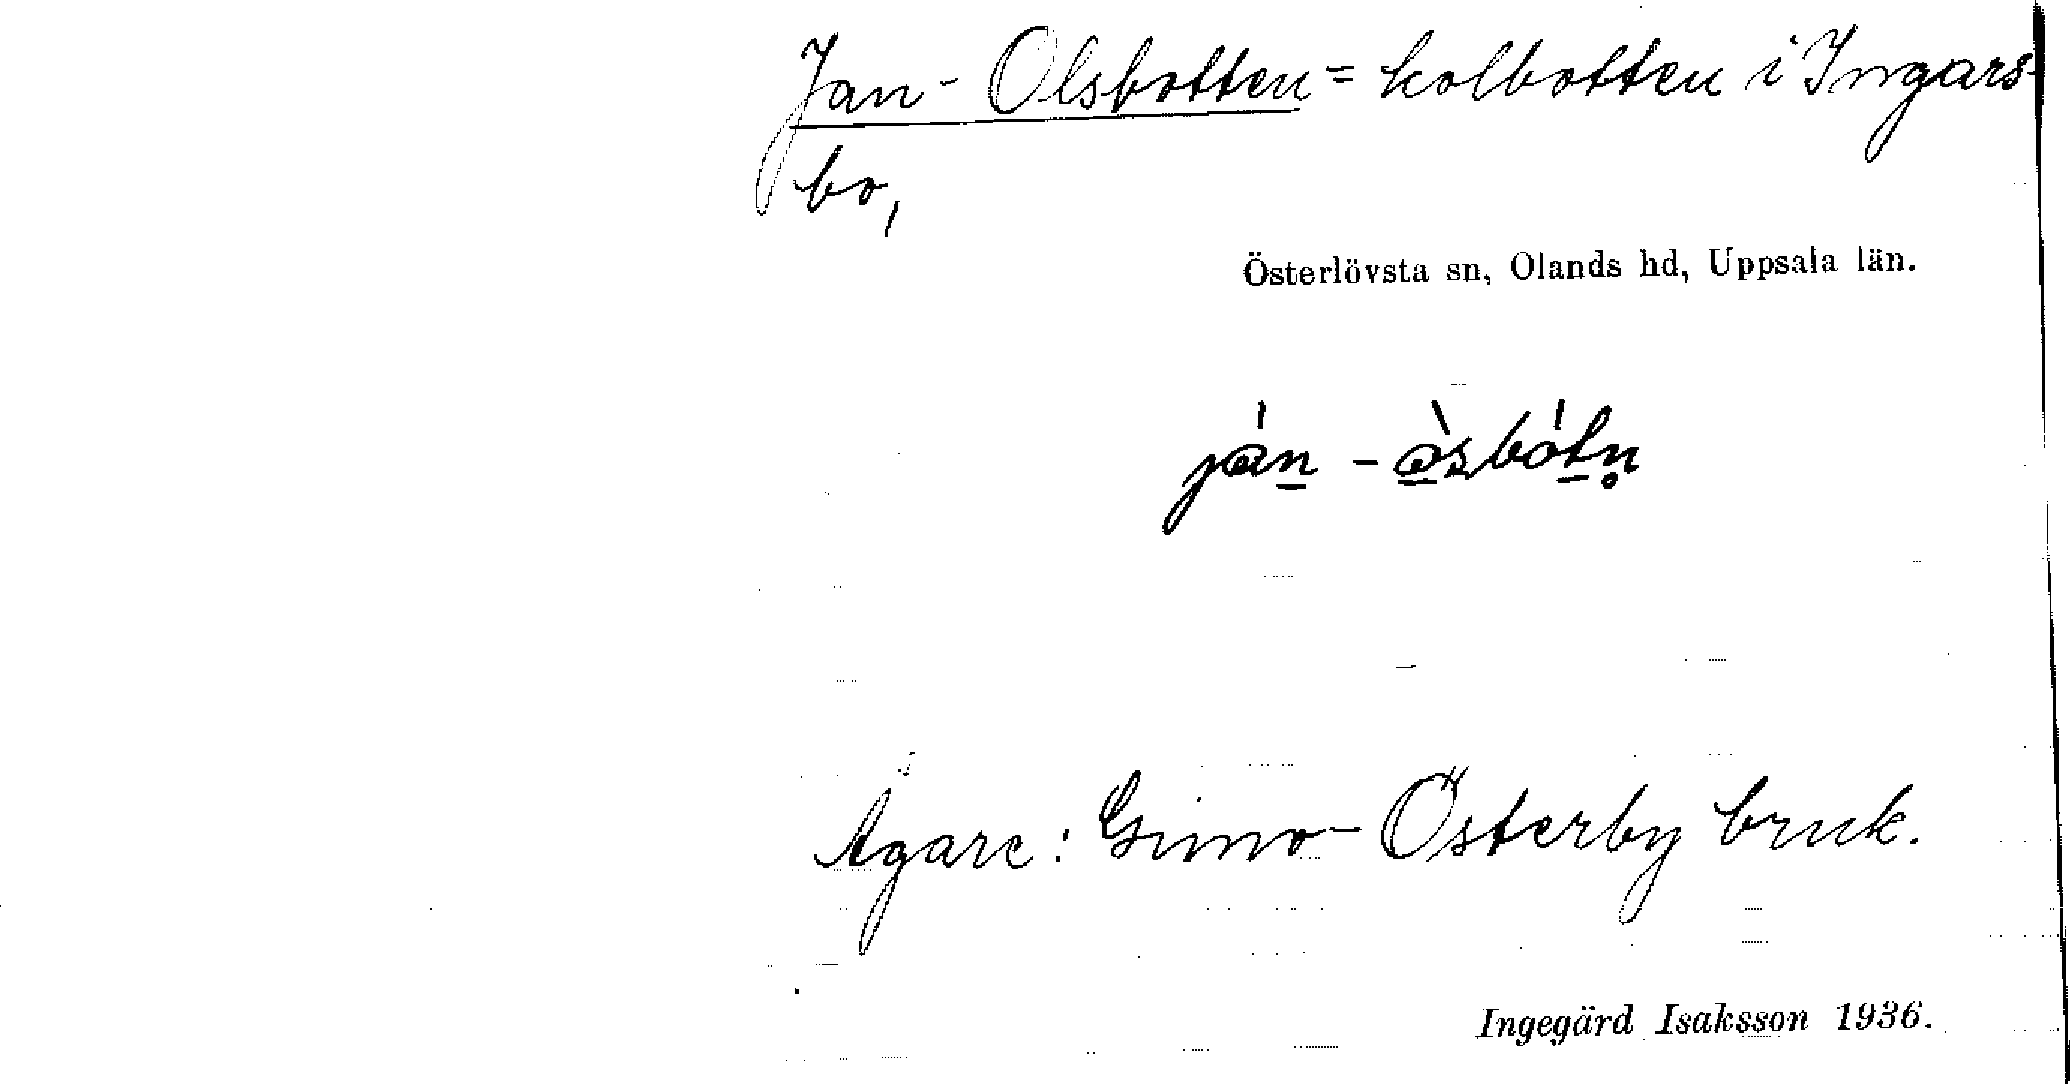 Jan-Olsbotten = kolbotten i Ingars-
bo,
Österlövsta sn, Olands hd, Uppsala län.
ján - òsbótn̥
Ägare: Gimo-Österby bruk.
Ingegärd Isaksson 1936.